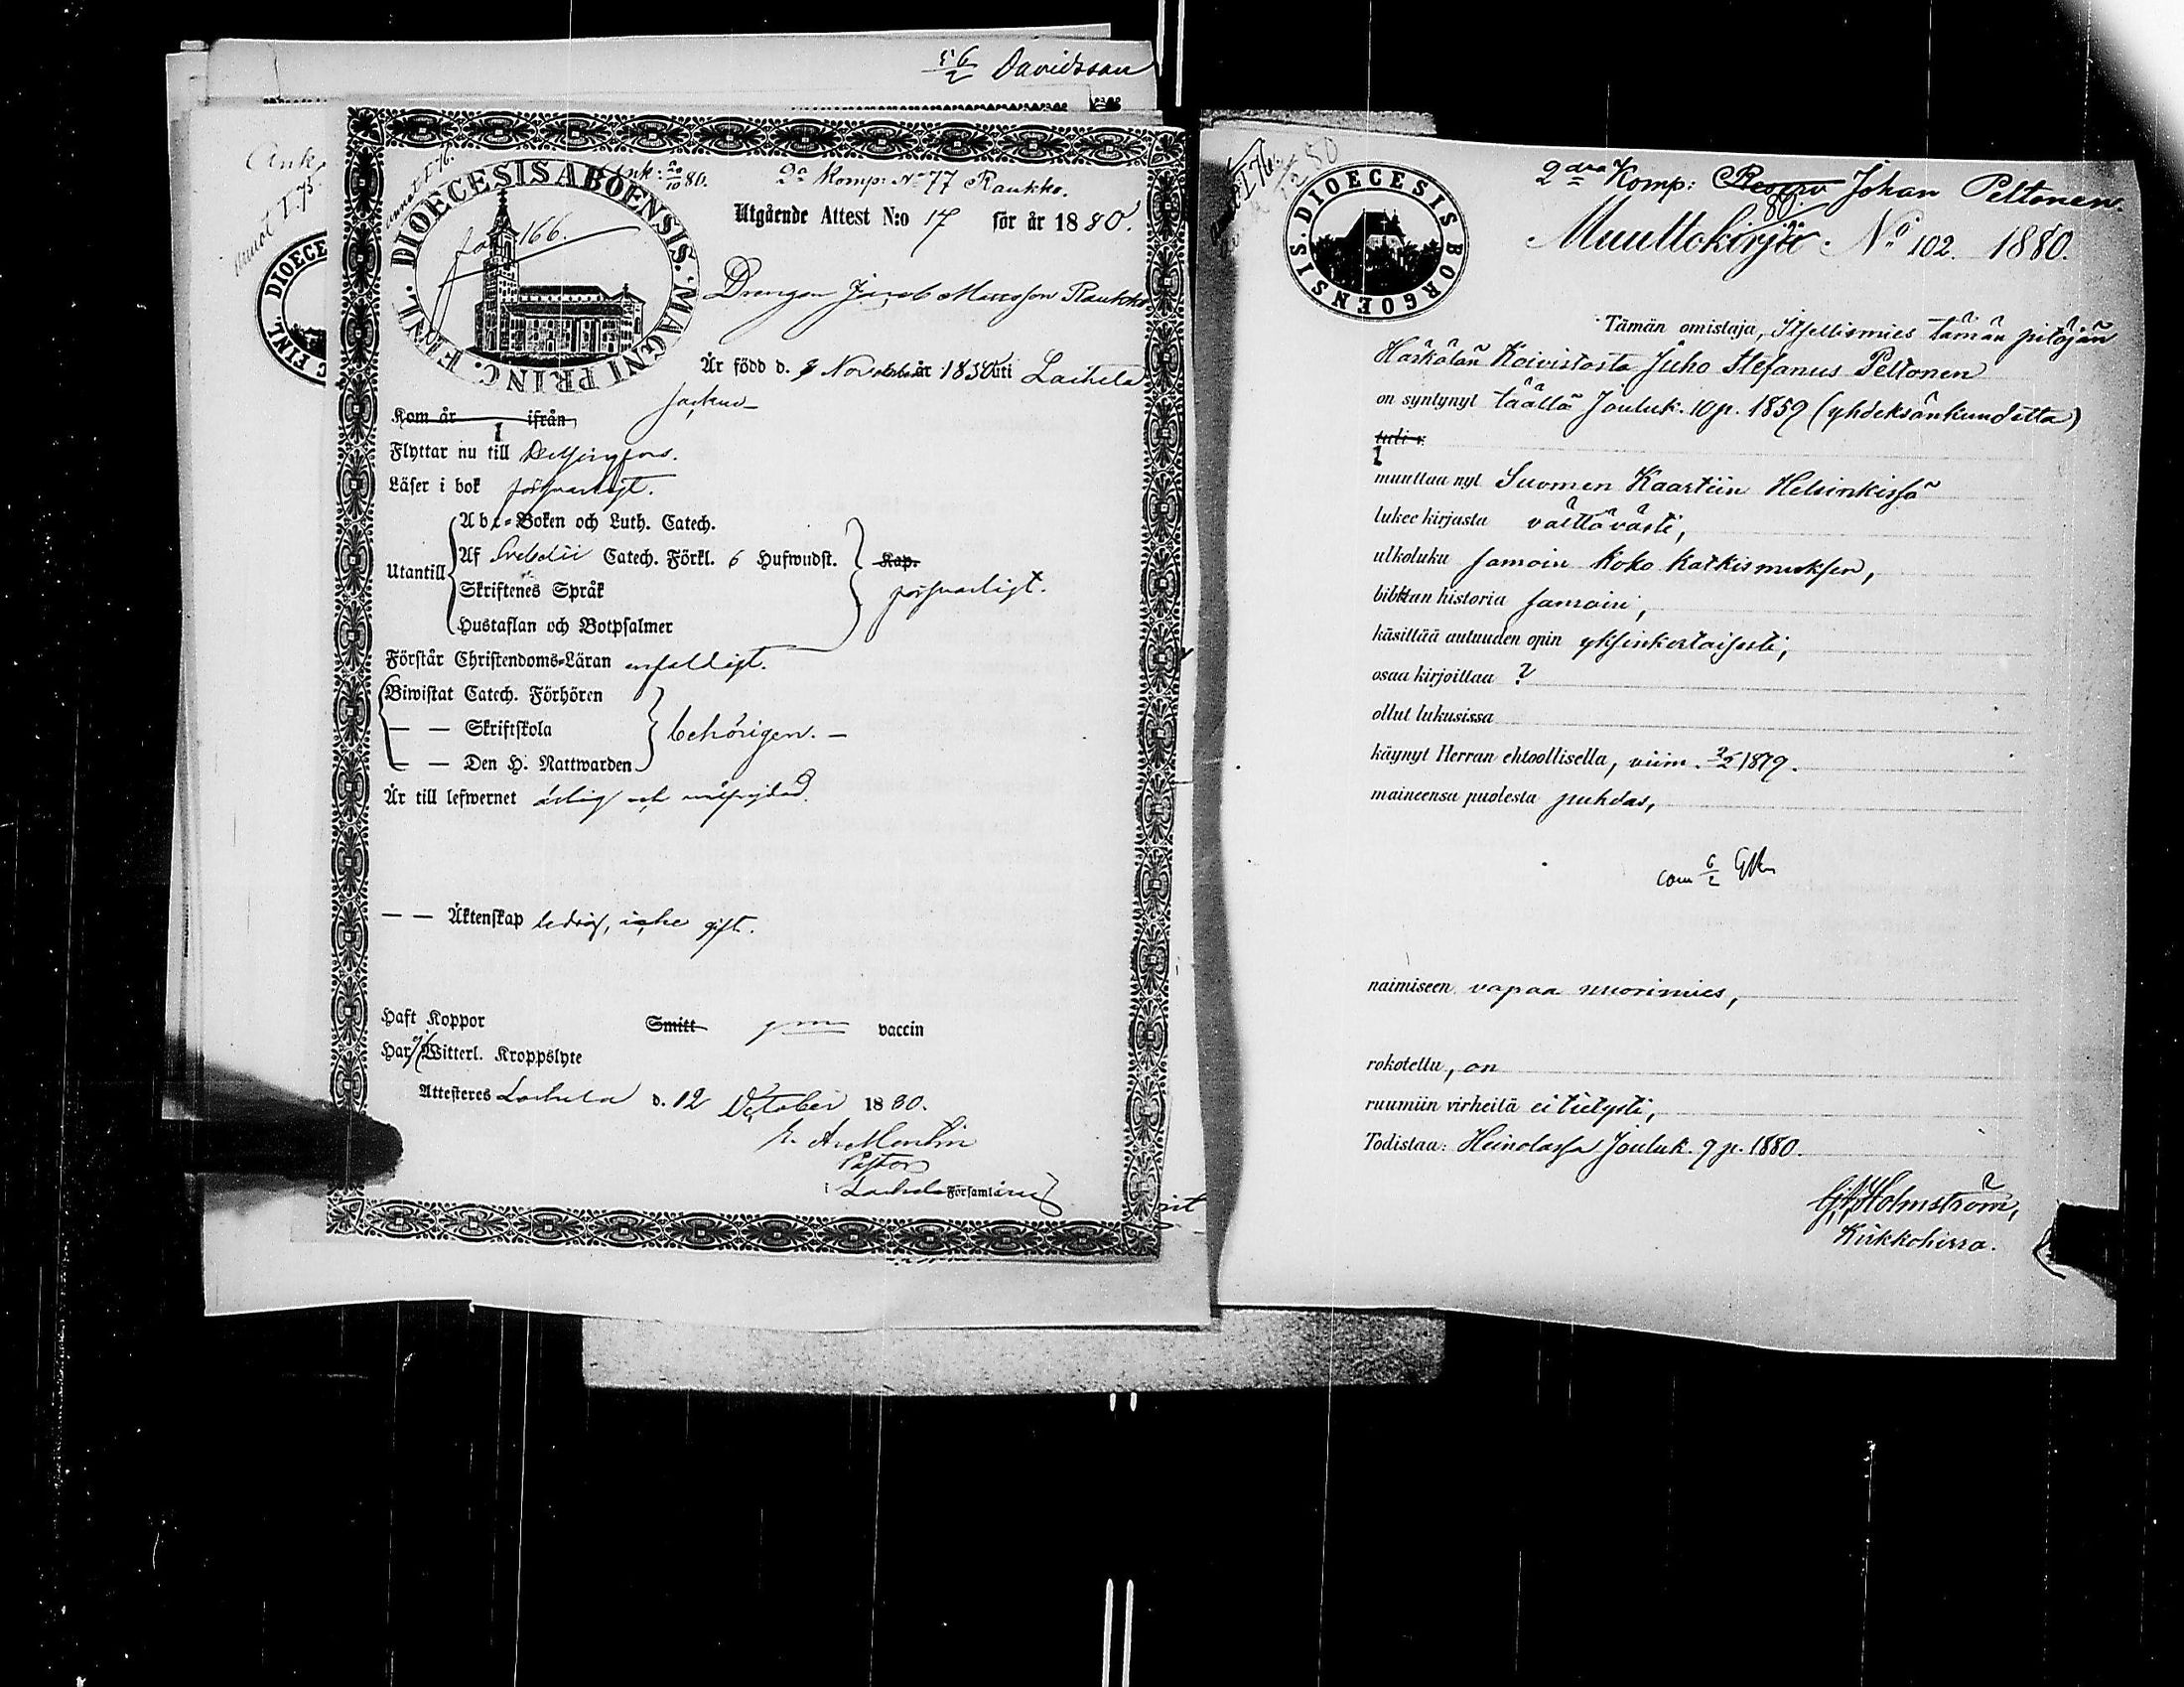 6/2 Davidsson
Ank.
annot I. 75
DIOECE
C. FINL.
annot I 76.
Ank: 20/10 80.
2a Komp: No 77 Raukko.
DIOECESIS ABOENSIS. MAGNI PRINC. FINL.
fol 166.
Utgående Attest N:o 17 för år 1880.
Drengen Jacob Matsson Raukko
Är född d. 9 November år 1858 uti Laihela
socken
Kom år ifrån
Flyttar nu till Helsingfors.
Läser i bok försvarligt.
Abc-Boken och Luth. Catech.
Utantill
Af Svebelii Catech. Förkl. 6 Hufwudst. Kap.
Skriftenes Språk
försvarligt.
Hustaflan och Botpsalmer
Förstår Christendoms-Läran enfaldigt.
Biwistat Catech. Förhören
— — Skriftskola
behörigen. —
— — Den H. Nattwarden
Är till lefwernet ärlig och välfrejdad.
— — Äktenskap ledig, icke gift.
Haft Koppor Smitt genom vaccin
Har ej Witterl. Kroppslyte
Attesteres Laihela d. 12 October 1880.
Pastor
i Laihela Församling
annot I 76.
DIOECESIS BORGOENSIS.
2dra Komp: Reserv Johan Peltonen.
80.
Muuttokirja No 102. 1880.
Tämän omistaja, Itsellismies tämän pitäjän
Härkälän Koivistosta Juho Stefanus Peltonen
on syntynyt täällä Jouluk. 10 p. 1859 (yhdeksänkundatta)
tuli v:
muuttaa nyt Suomen Kaartiin Helsinkissä
lukee kirjasta välttävästi,
ulkoluku samoin koko Katkismuksen,
biblian historia samoin,
käsittää autuuden opin yksinkertaisesti,
osaa kirjoittaa ?
ollut lukusissa
käynyt Herran ehtoollisella, viim. 2/2 1879.
maineensa puolesta puhdas,
com 6/2
naimiseen vapaa nuorimies,
rokotettu, on
ruumiin virheitä ei tietysti,
Todistaa: Heinolassa Jouluk. 9 p. 1880.
Holmström,
Kirkkoherra.